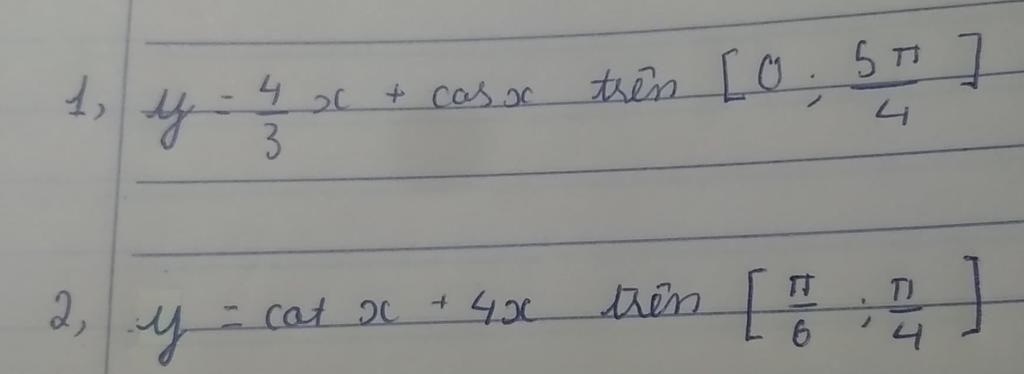 1, y = 4/3 x + cos x trên [0 ; 5π/4]
2, y = cot x + 4x trên [π/6 ; π/4]